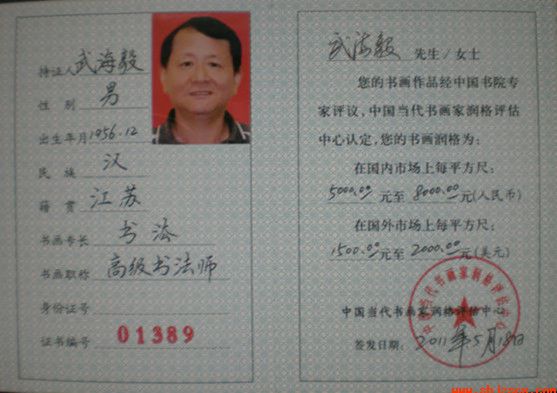 持证人 武海毅
性别 男
出生年月 1956.12
民族 汉
籍贯 江苏
书画专长 书法
书画职称 高级书法师
身份证号
证书编号 01389
武海毅 先生/女士
您的书画作品经中国书院专
家评议,中国当代书画家润格评估
中心认定,您的书画润格为:
在国内市场上每平方尺:
5000.00元至8000.00元(人民币)
在国外市场上每平方尺:
1500.00元至2000.00元(美元)
中国当代书画家润格评估中心
签发日期: 2011年5月18日
中国当代书画家润格评估中心